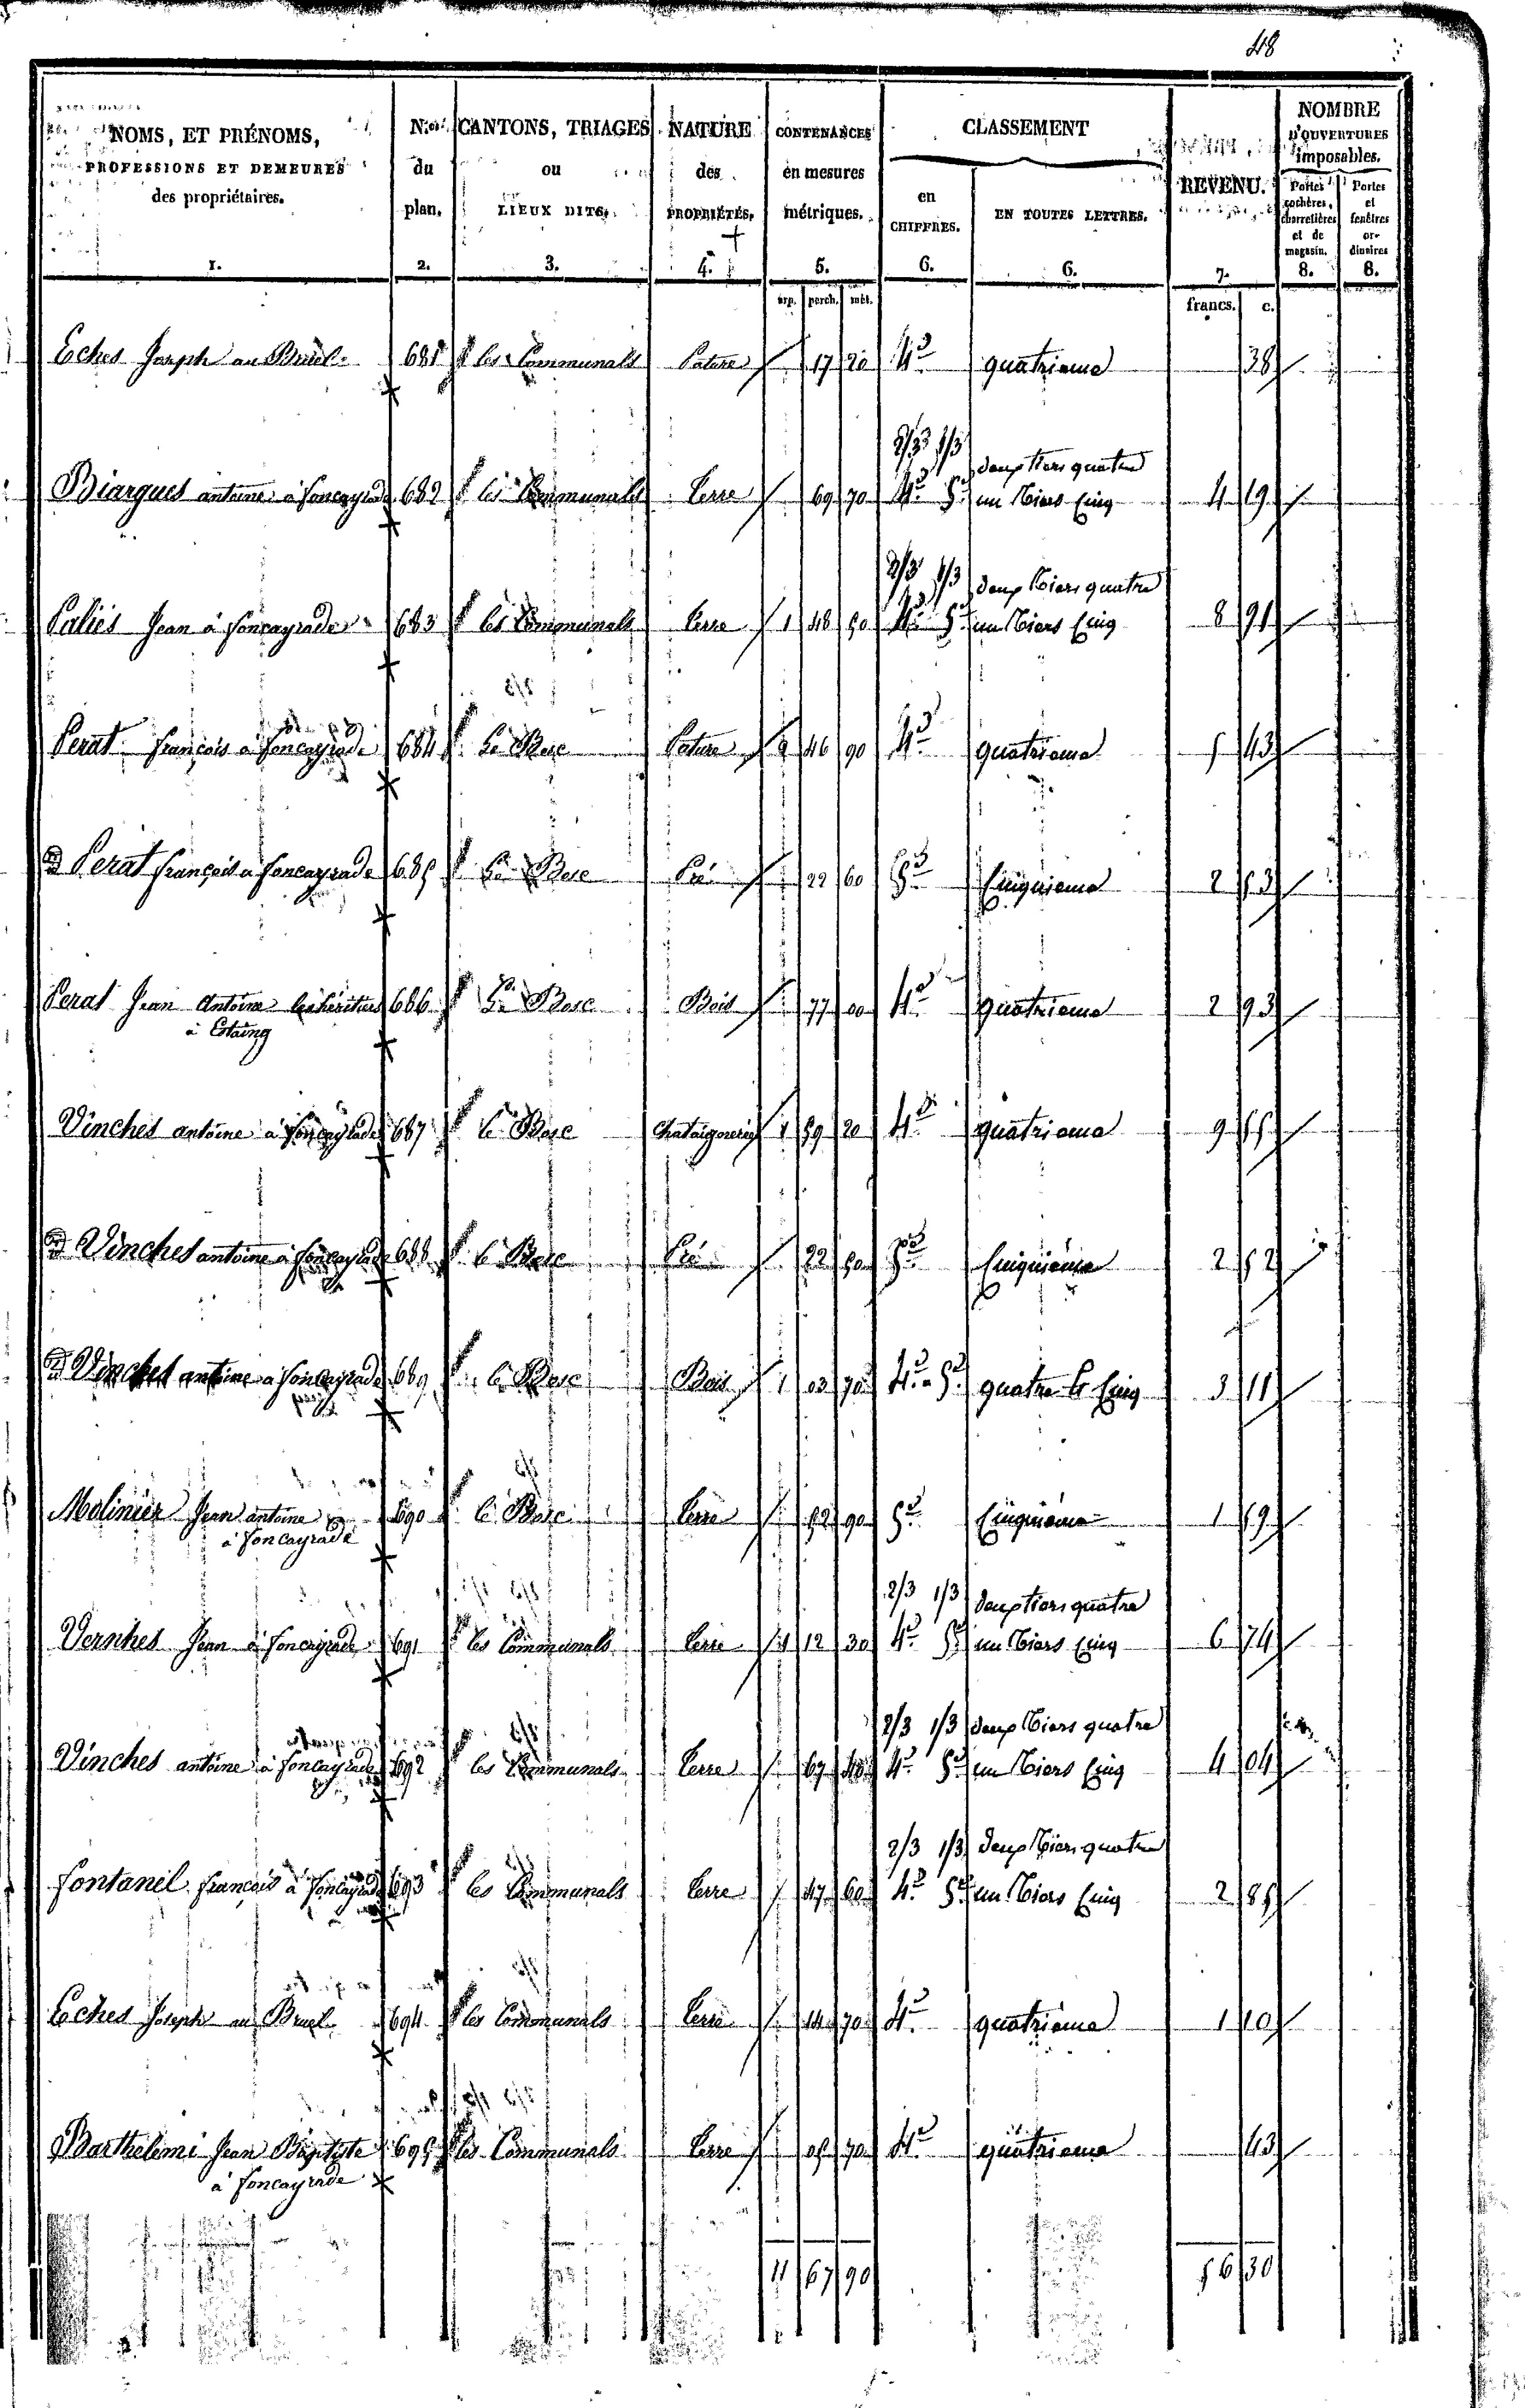 48
NOMS, ET PRÉNOMS, PROFESSIONS ET DEMEURES des propriétaires. 1.
N.os du plan. 2.
CANTONS, TRIAGES ou LIEUX DITS. 3.
NATURE des PROPRIÉTÉS. 4.
CONTENANCES en mesures métriques. 5.
CLASSEMENT
en CHIFFRES. 6.
EN TOUTES LETTRES. 6.
REVENU. 7.
NOMBRE D'OUVERTURES imposables.
Portes cochères, charretières et de magasin. 8.
Portes et fenêtres ordinaires 8.
arp. perch. mèt. francs. c.
Eches Joseph au Bruel 681 les Communals Pature 17 20 4e quatrieme 38
2/3 1/3 deux tiers quatre
Biargues antoine à foncayrade 682 les Communals Terre 69 70 4e 5e un tiers Cinq 4 19
2/3 1/3 deux tiers quatre
Paliés Jean à foncayrade 683 les Communals Terre 1 48 50 4e 5e un tiers Cinq 8 91
Perat françois à foncayrade 684 Le Bosc Pature 2 46 90 4e quatrieme 5 43
Perat françois à foncayrade 685 Le Bosc Pré 22 60 5e Cinquieme 2 53
Perat Jean Antoine les héritiers 686 Le Bosc Bois 77 00 4e quatrieme 2 93
à Estaing
Vinches antoine à foncayrade 687 le Bosc Chataigneraie 1 59 20 4e quatrieme 9 55
Vinches antoine à foncayrade 688 le Bosc Pré 22 50 5e Cinquieme 2 52
Vinches antoine à foncayrade 689 le Bosc Bois 1 03 70 4e 5e quatre & Cinq 3 11
Molinier Jean antoine 690 le Bosc Terre 52 90 5e Cinquieme 1 59
à foncayrade
2/3 1/3 deux tiers quatre
Vernhes Jean à foncayrade 691 les Communals Terre 1 12 30 4e 5e un tiers Cinq 6 74
2/3 1/3 deux tiers quatre
Vinches antoine à foncayrade 692 les Communals Terre 67 40 4e 5e un tiers Cinq 4 04
2/3 1/3 deux tiers quatre
fontanil françois à foncayrade 693 les Communals Terre 47 60 4e 5e un tiers Cinq 2 85
Eches Joseph au Bruel 694 les Communals Terre 14 70 4e quatrieme 1 10
Barthelemi Jean Baptiste 695 les Communals Terre 05 70 4e quatrieme 43
à foncayrade
11 67 90 56 30